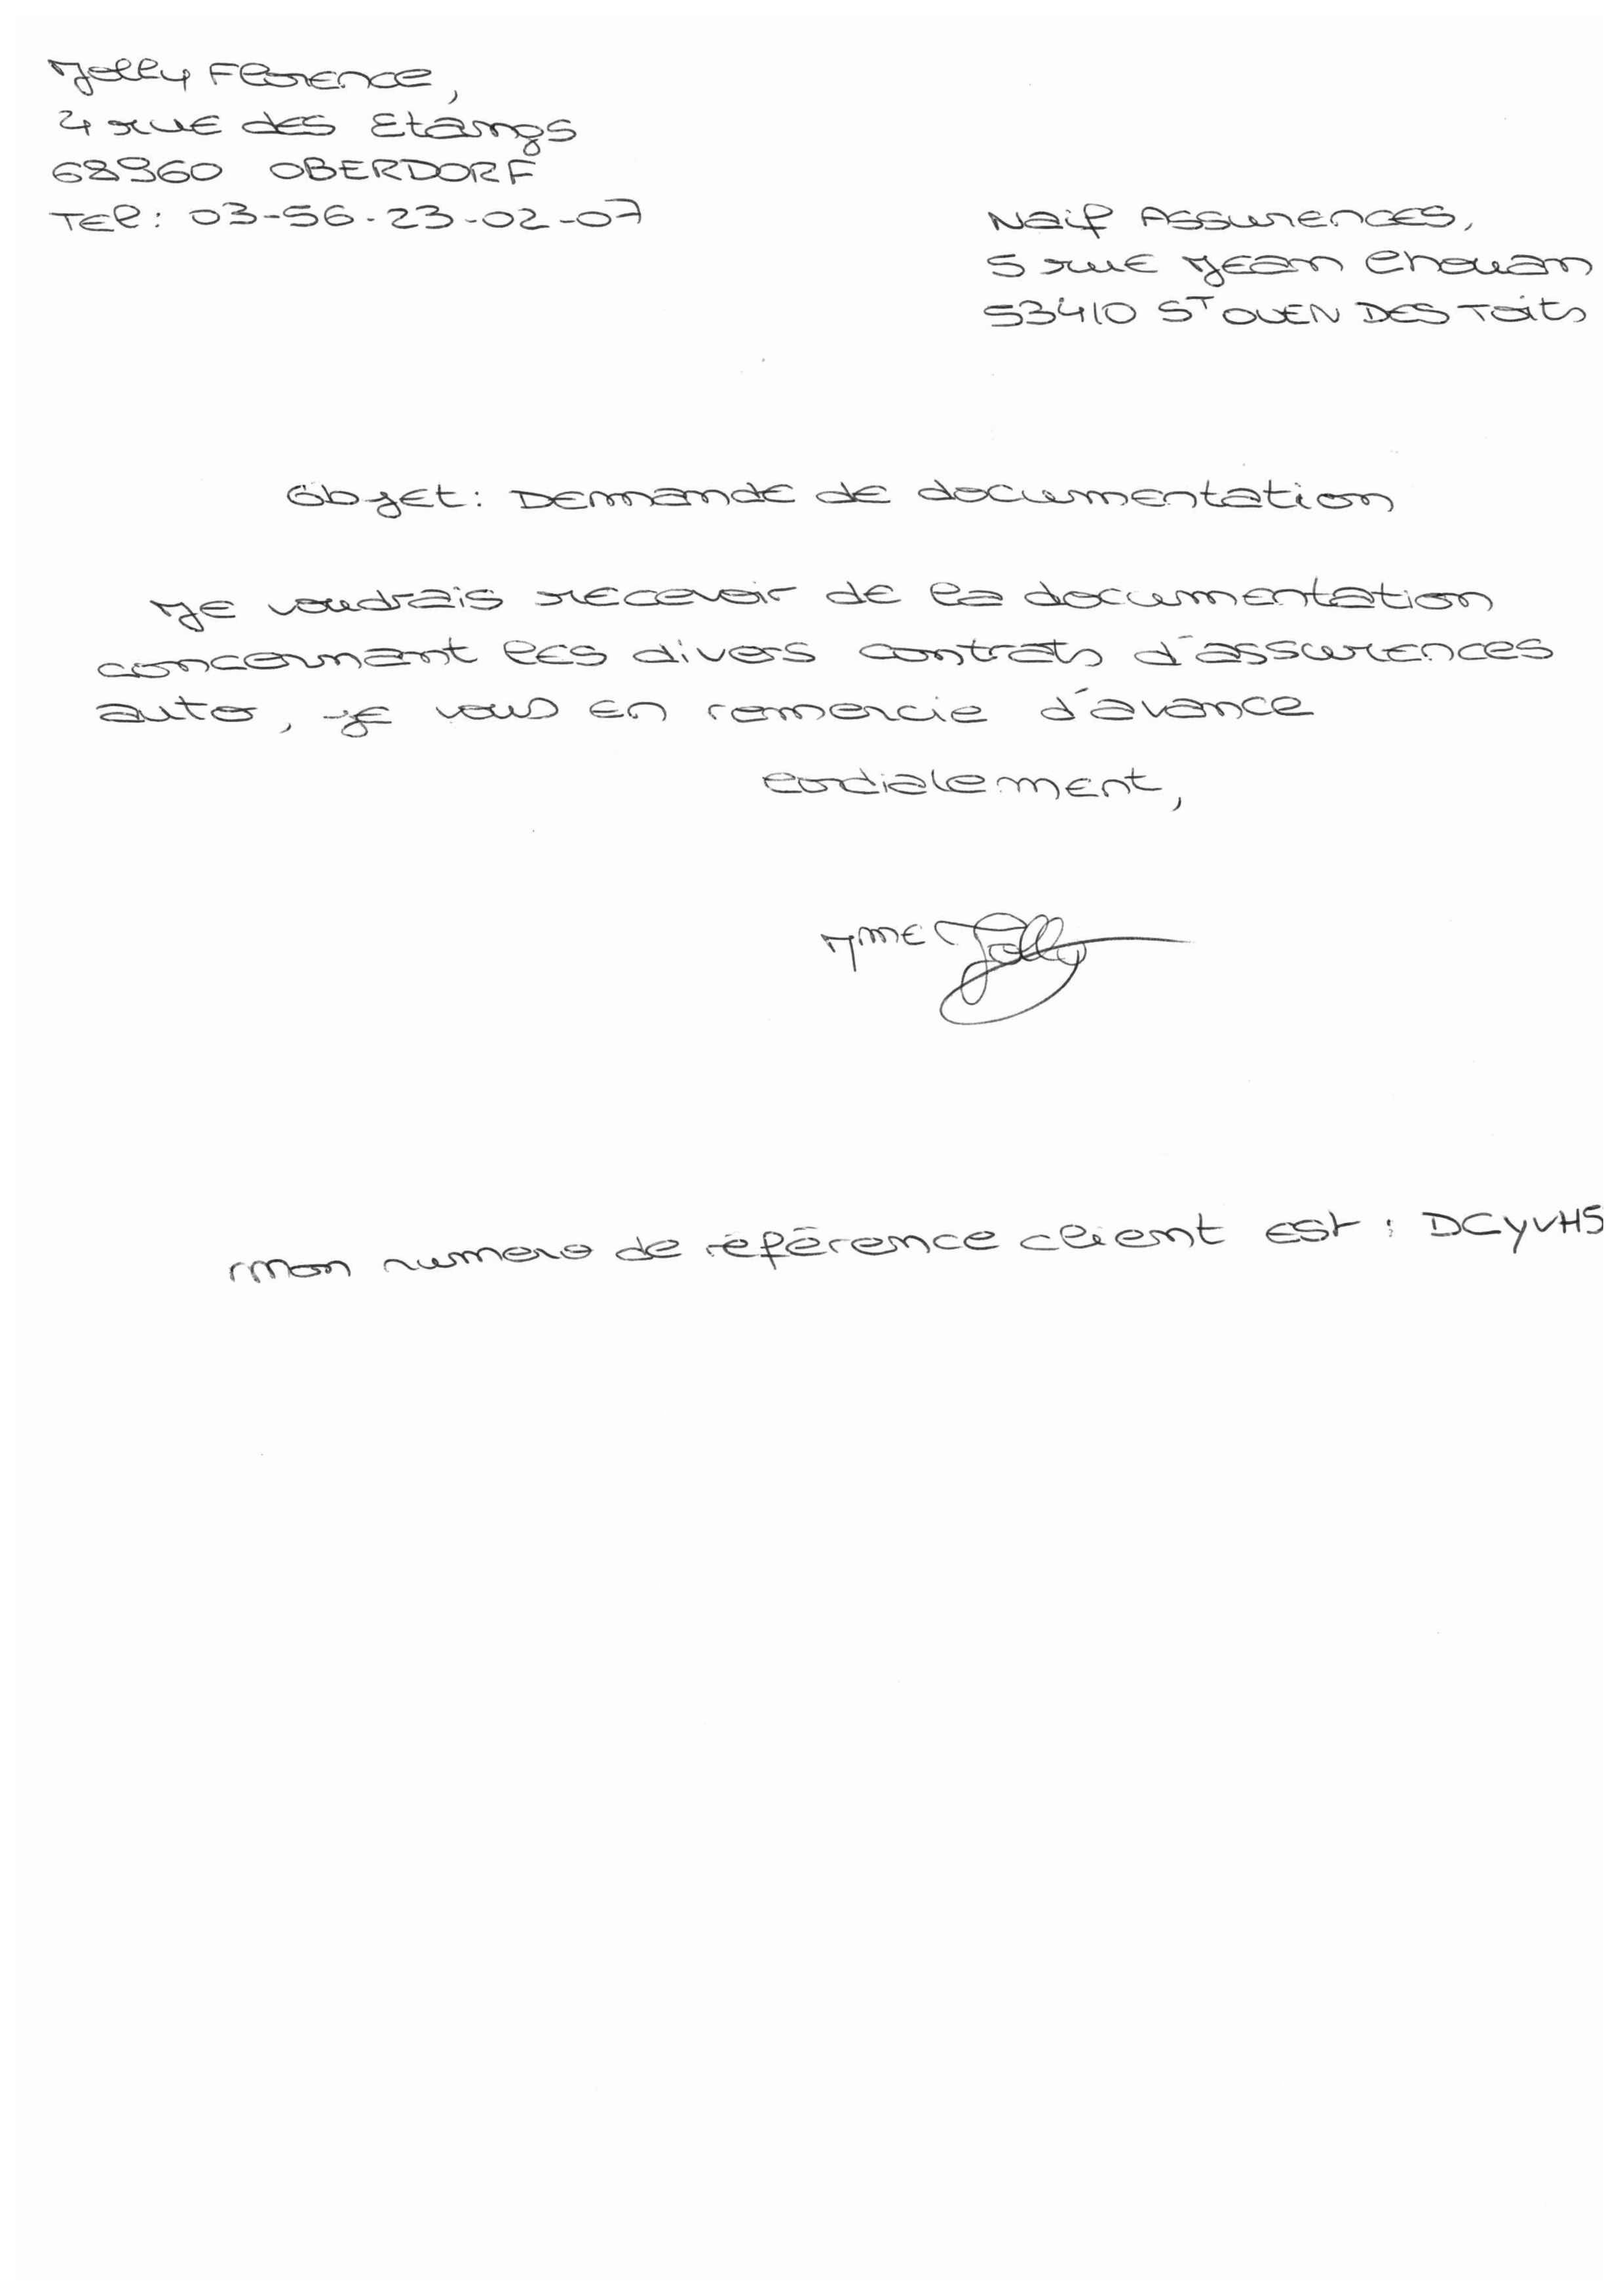 Jolly Florence,
4 rue des Etangs
68960 OBERDORF
Tel : 03-56-23-02-07
Naif Assurences,
5 rue Jean Chouan
53410 ST OUEN DES Toits
Objet : Demande de documentation
Je voudrais recevoir de la documentation
concernant les divers contrats d'assurences
auto, je vous en remercie d'avance
Cordialement,
Mme Jolly
mon numero de référence client est : DCYVH5